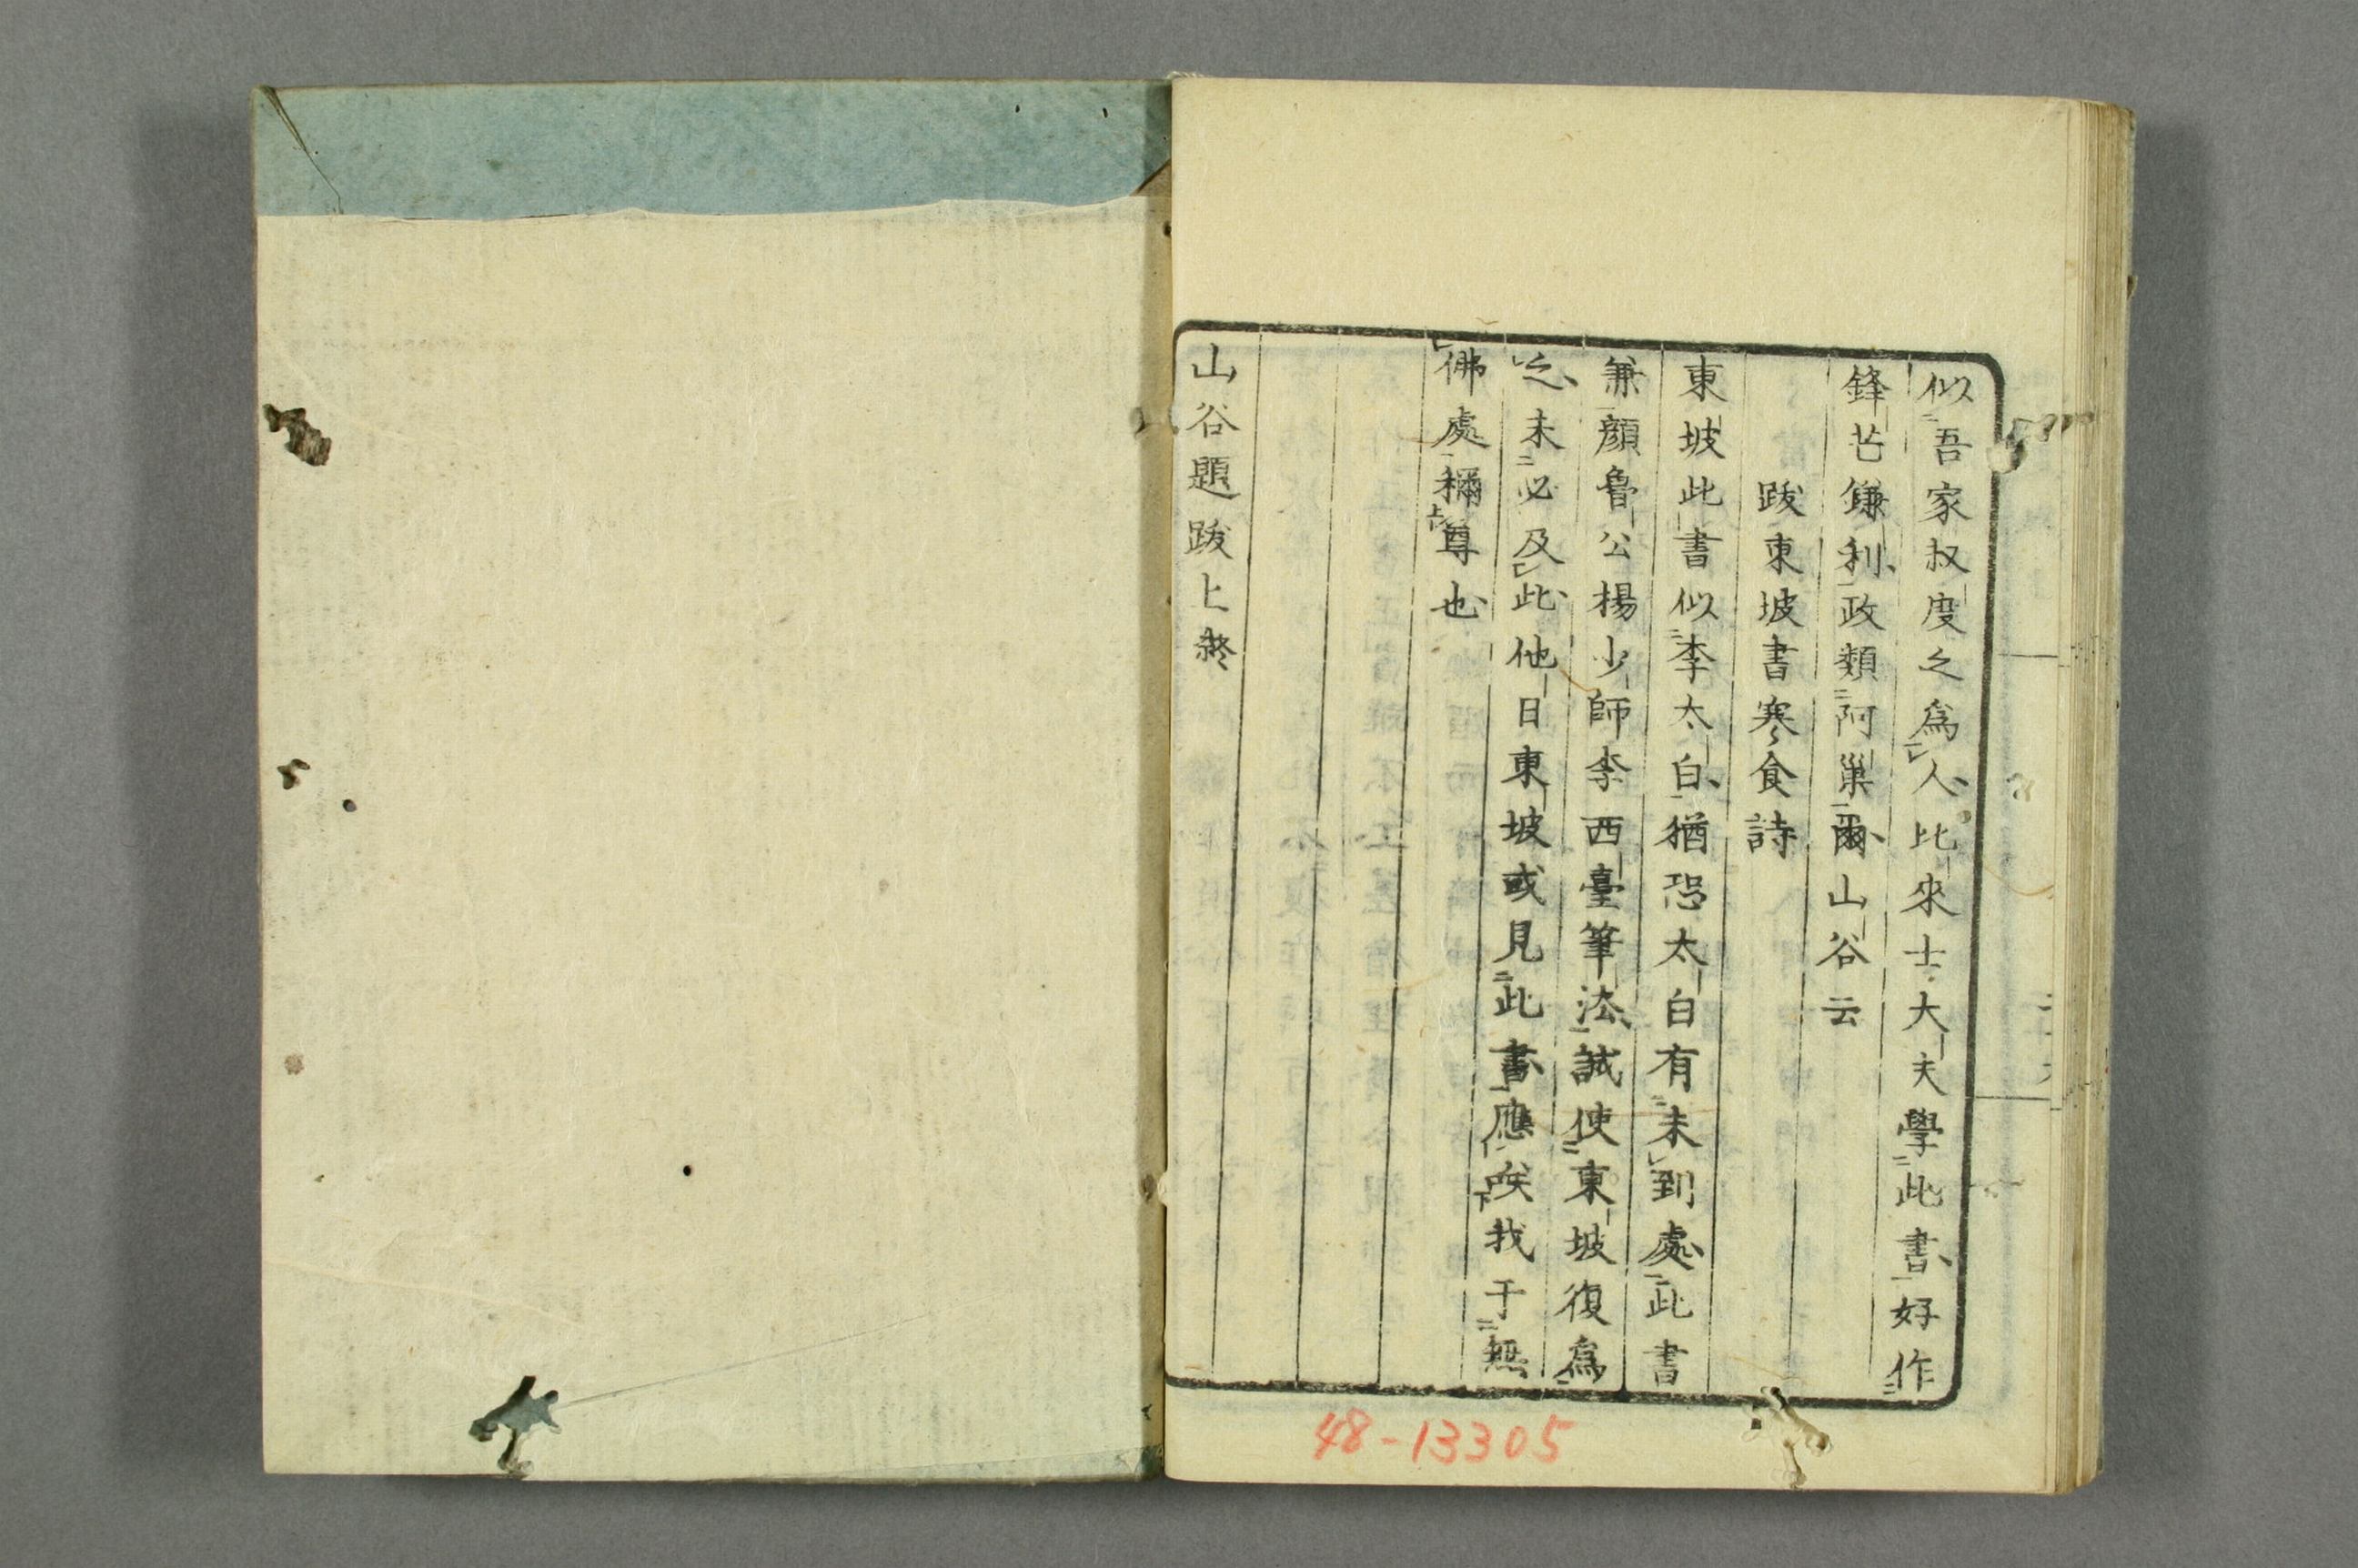 似吾家叔度之爲人比來士大夫學此書好作
鋒芒鎌利政類阿巢爾山谷云
跋東坡書寒食詩
東坡此書似李太白猶恐太白有未到處此書
兼顔魯公楊少師李西臺筆法試使東坡復爲
之未必及此他日東坡或見此書應笑我于無
佛處稱尊也
山谷題跋上終
48-13305